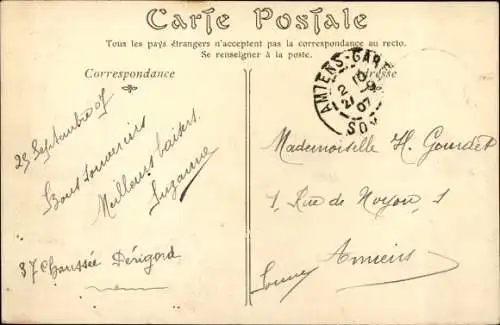 Carte Postale
Tous les pays étrangers n'acceptent pas la correspondance au recto.
Se renseigner à la poste.
Correspondance
Adresse
AMIENS-GARE
SOMME
23 Septembre 07
Bons souvenirs
Meilleurs baisers.
Suzanne
37 Chaussée Périgord
Mademoiselle H. Gourdet
1, Rue de Noyon, 1
Amiens
Somme